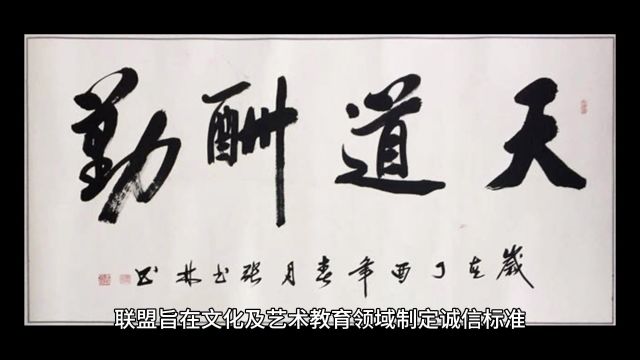 天道酬勤
歲在丁酉年春月張林书
联盟旨在文化及艺术教育领域制定诚信标准